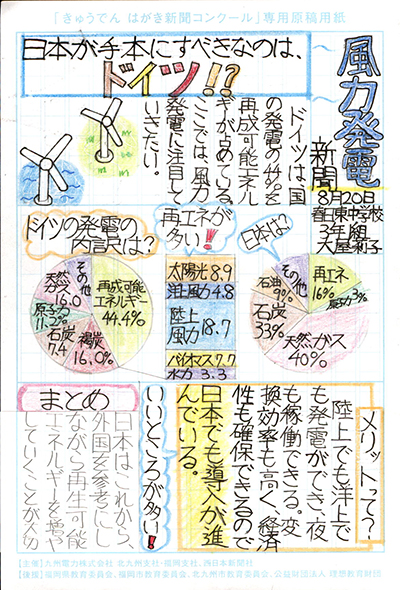 「きゅうでん はがき新聞コンクール」専用原稿用紙
風力発電
新聞
8月20日
春日東中学校
3年1組
大屋莉子
日本が手本にすべきなのは、
ドイツ!?
ドイツは、国
の発電の44%を
再成可能エネル
ギーが占めている。
ここでは、風力
発電に注目して
いきたい。
ドイツの発電の
内訳は?
再成可能
エネルギー
44.4%
褐炭
16.0%
石炭
7.4
原子力
11.2%
天然
ガス
16.0
その他
再エネが
多い!!
太陽光8.9
洋上風力4.8
陸上
風力18.7
バイオマス7.7
水力3.3
日本は?
再エネ
16%
原子力3%
天然ガス
40%
石炭
33%
石油
9%
その他
メリットって?
陸上でも洋上で
も発電ができ、夜
も稼働できる。変
換効率も高く、経済
性も確保できるので
日本でも導入が進
んでいる。
いいところが多い!
まとめ
日本はこれから、
外国を参考にし
ながら再生可能
エネルギーを増や
していくことが大切
【主催】九州電力株式会社 北九州支社・福岡支社、西日本新聞社
【後援】福岡県教育委員会、福岡市教育委員会、北九州市教育委員会、公益財団法人 理想教育財団